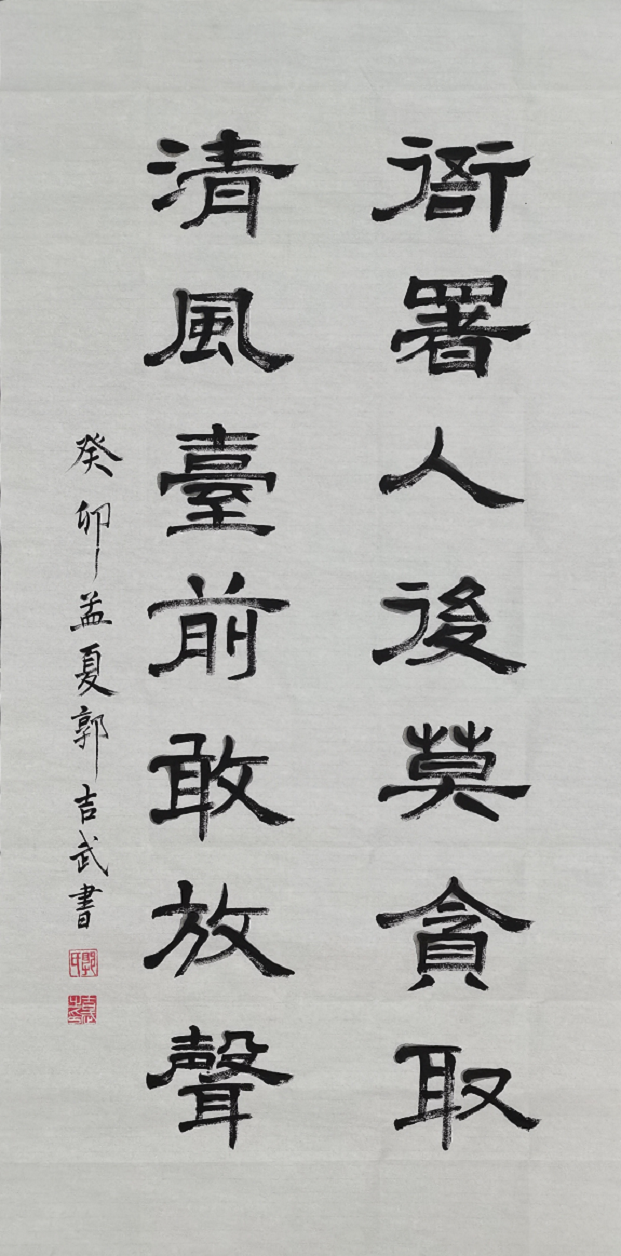 衙署人後莫貪取
清風臺前敢放聲
癸卯孟夏郭吉武書